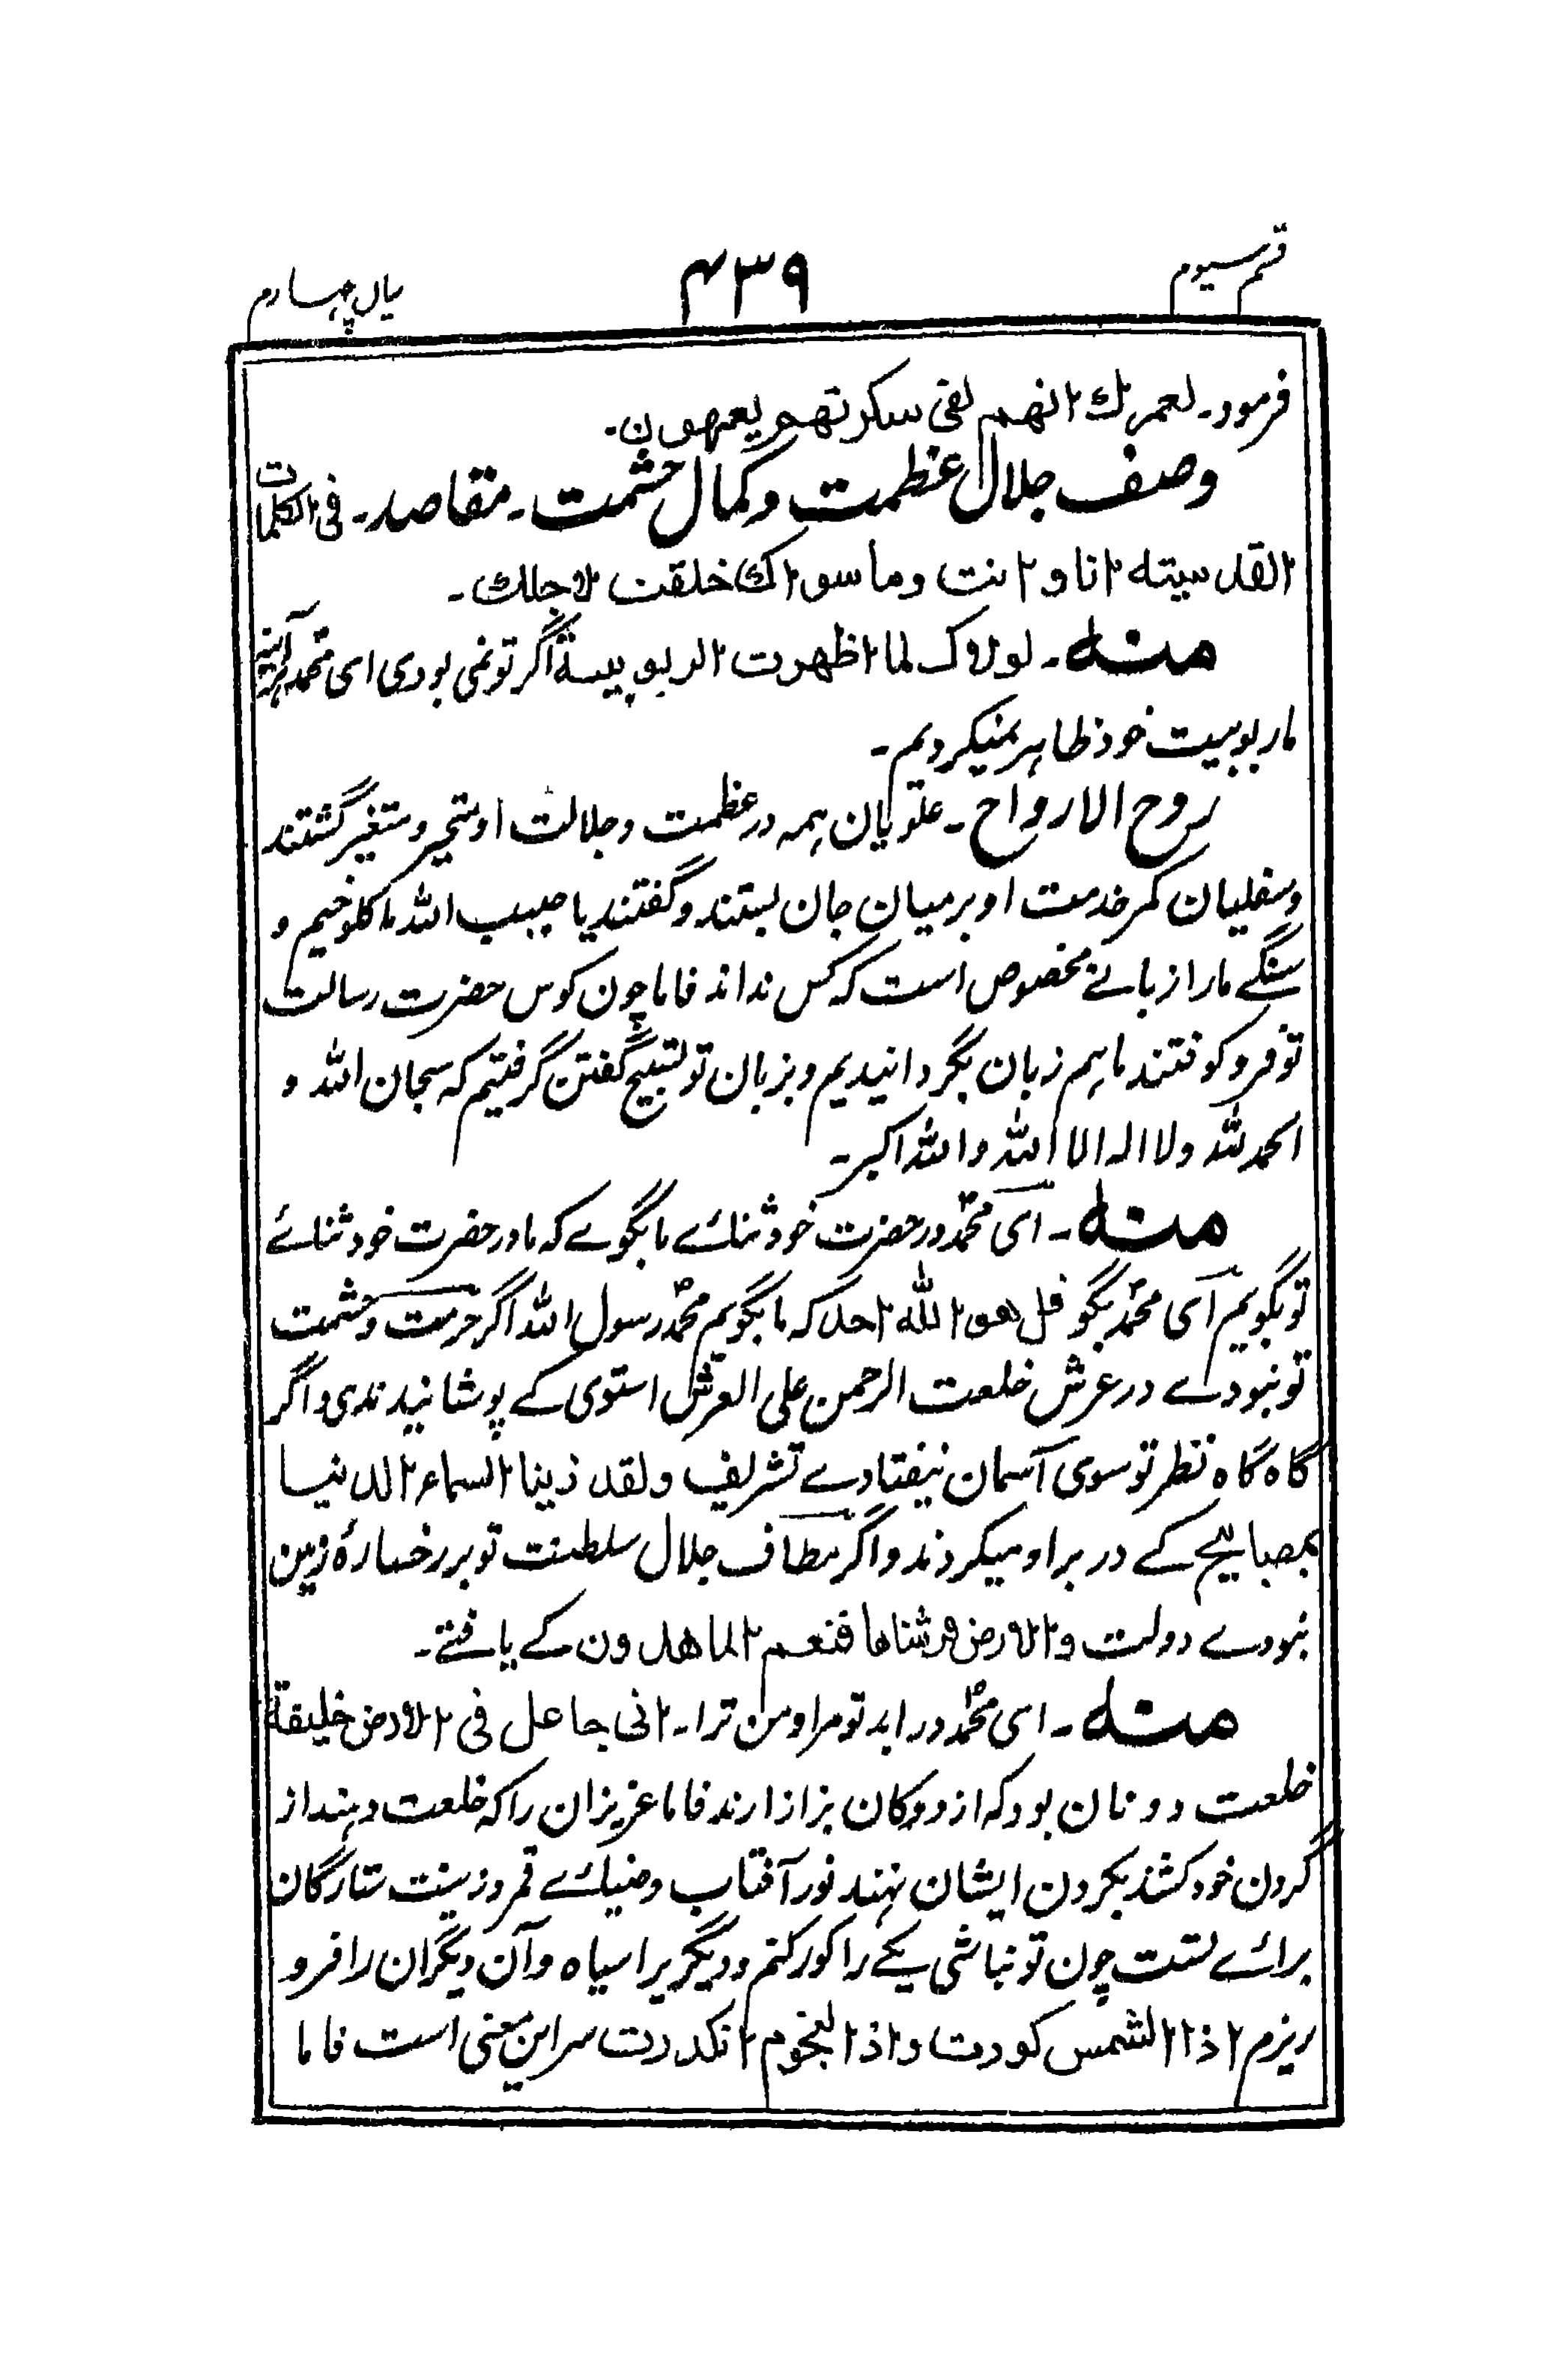 قسم سیوم
۴۳۹
بیان چہارم
فرمود۔ لعمرك انهم لفی سکرتهم یعمهون۔
وصف جلال عظمت و کمال حشمت۔ مقاصد۔ فی الکلمات
القدسیته انا و انت وما سواک خلقت لاجلك۔
منه۔ لولاک لما اظهرت الربوبیة اگر تو نمی بودی ای محمدؐ ہر آئینہ
ما ربوبیت خود ظاہر نمیکردیم۔
روح الارواح۔ علویان ہمہ در عظمت و جلالت او متحیر و متغیر گشتند
و سفلیان کمر خدمت او بر میان جان بستند و گفتند یا حبیب اللہ ما کلوخیم و
سنگے ما را زبانے مخصوص است کہ کس نداند فاما چون کوس حضرت رسالت
تو فرو کوفتند ما ہم زبان بگردانیدیم و بزبان تو تسبیح گفتن گرفتیم کہ سبحان اللہ و
الحمد للہ ولا الہ الا اللہ و اللہ اکبر۔
منه۔ ای محمدؐ در حضرت خود ثنائے ما بگوے کہ ما در حضرت خود ثنائے
تو بگویم ای محمدؐ بگو قل هو الله احد کہ ما بگویم محمدؐ رسول اللہ اگر حرمت و حشمت
تو نبودے در عرش خلعت الرحمن علی العرش استوی کے پوشانیدندی و اگر
گاہ گاہ نظر تو سوی آسمان نیفتادے تشریف ولقد زینا السماء الدنیا
بمصابیح کے در بر او میکردند و اگر مطاف جلال سلطنت تو بر رخسارۂ زمین
نبودے دولت والارض فرشناها فنعم الماهدون کے یافتے۔
منه۔ ای محمدؐ در ابد تو مرا و من ترا۔ انی جاعل فی الارض خلیفة
خلعت دونان بود کہ از دوکان بزاز ارند فاما عزیزان را کہ خلعت دہند از
گردن خود کشند بگردن ایشان نہند نور آفتاب و ضیائے قمر و زینت ستارگان
برائے تست چون تو نباشی یکے را کور کنم و دیگریرا سیاہ و آن دیگران را فرو
ریزم اذا الشمس کورت و اذا النجوم انکدرت سر این معنی است فاما